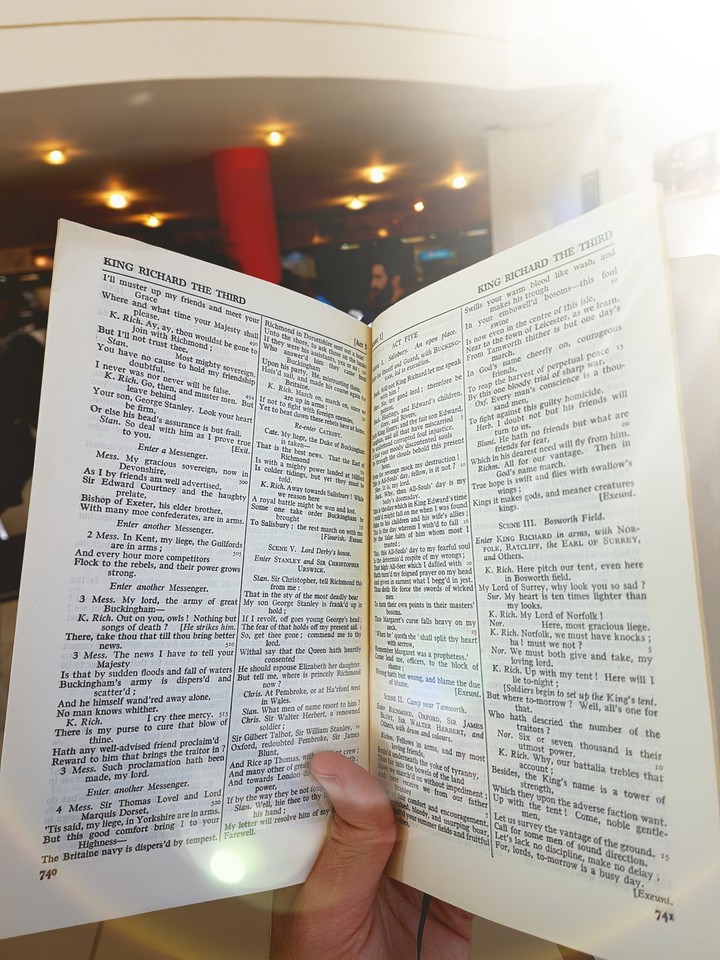 KING RICHARD THE THIRD
I'll muster up my friends and meet your
Grace
Where and what time your Majesty shall
please.
K. Rich. Ay, ay, thou wouldst be gone to
join with Richmond;
But I'll not trust thee.
Stan. Most mighty sovereign,
You have no cause to hold my friendship
doubtful.
I never was nor never will be false.
K. Rich. Go, then, and muster men. But
leave behind
Your son, George Stanley. Look your heart
be firm,
Or else his head's assurance is but frail.
Stan. So deal with him as I prove true
to you. [Exit.
Enter a Messenger.
Mess. My gracious sovereign, now in
Devonshire,
As I by friends am well advertised,
Sir Edward Courtney and the haughty
prelate,
Bishop of Exeter, his elder brother,
With many moe confederates, are in arms.
Enter another Messenger.
2 Mess. In Kent, my liege, the Guilfords
are in arms;
And every hour more competitors
Flock to the rebels, and their power grows
strong.
Enter another Messenger.
3 Mess. My lord, the army of great
Buckingham—
K. Rich. Out on you, owls! Nothing but
songs of death? [He strikes him.
There, take thou that till thou bring better
news.
3 Mess. The news I have to tell your
Majesty
Is that by sudden floods and fall of waters
Buckingham's army is dispers'd and
scatter'd;
And he himself wand'red away alone,
No man knows whither.
K. Rich. I cry thee mercy. 515
There is my purse to cure that blow of
thine.
Hath any well-advised friend proclaim'd
Reward to him that brings the traitor in?
3 Mess. Such proclamation hath been
made, my lord.
Enter another Messenger.
4 Mess. Sir Thomas Lovel and Lord
Marquis Dorset,
'Tis said, my liege, in Yorkshire are in arms.
But this good comfort bring I to your
Highness—
The Britaine navy is dispers'd by tempest.
740
Richmond in Dorsetshire sent out a boat
Unto the shore, to ask those on the
If they were his assistants, yea or
Who answer'd him they came from
Buckingham
Upon his party. He, mistrusting them,
Hois'd sail, and made his course again
Britaine.
K. Rich. March on, march on, since we
are up in arms;
If not to fight with foreign enemies,
Yet to beat down these rebels here at
Re-enter CATESBY.
Cate. My liege, the Duke of Buckingham
is taken—
That is the best news. That the Earl
Richmond
Is with a mighty power landed at Milford
Is colder tidings, but yet they must
told.
K. Rich. Away towards Salisbury! While
we reason here
A royal battle might be won and lost.
Some one take order Buckingham be
brought
To Salisbury; the rest march on with me.
[Flourish. Exeunt.
SCENE V. Lord Derby's house.
Enter STANLEY and SIR CHRISTOPHER
URSWICK.
Stan. Sir Christopher, tell Richmond this
from me:
That in the sty of the most deadly boar
My son George Stanley is frank'd up in
hold;
If I revolt, off goes young George's head;
The fear of that holds off my present aid.
So, get thee gone; commend me to thy
lord.
Withal say that the Queen hath heartily
consented
He should espouse Elizabeth her daughter.
But tell me, where is princely Richmond
now?
Chris. At Pembroke, or at Ha'rford west
in Wales.
Stan. What men of name resort to him?
Chris. Sir Walter Herbert, a renowned
soldier;
Sir Gilbert Talbot, Sir William Stanley,
Oxford, redoubted Pembroke, Sir James
Blunt,
And Rice ap Thomas, with crew;
And many other of great
And towards London do
power,
If by the way they be not
Stan. Well, hie thee to thy
his hand;
My letter will resolve him of my
Farewell.
KING RICHARD THE THIRD
ACT FIVE
Salisbury. An open place.
Will not King Richard let me speak
No, good my lord; therefore be
patient.
Hastings, and Edward's children,
Grey, and Rivers,
King Henry, and thy fair son Edward,
and all that have miscarried
By underhand corrupted foul injustice,
If that your moody discontented souls
Do through the clouds behold this present
hour,
Even for revenge mock my destruction!
This is All-Souls' day, fellow, is it not?
Buck. Why, then All-Souls' day is my
body's doomsday.
This is the day which in King Edward's time
I wish'd might fall on me when I was found
False to his children and his wife's allies;
This is the day wherein I wish'd to fall
By the false faith of him whom most I
trusted;
This, this All-Souls' day to my fearful soul
Is the determin'd respite of my wrongs;
That high All-Seer which I dallied with
Hath turn'd my feigned prayer on my head
And given in earnest what I begg'd in jest.
Thus doth He force the swords of wicked
men
To turn their own points in their masters'
bosoms.
Thus Margaret's curse falls heavy on my
neck.
'When he' quoth she 'shall split thy heart
with sorrow,
Remember Margaret was a prophetess.'
Come lead me, officers, to the block of
shame;
Wrong hath but wrong, and blame the due
of blame. [Exeunt.
SCENE II. Camp near Tamworth.
Enter RICHMOND, OXFORD, SIR JAMES
BLUNT, SIR WALTER HERBERT, and
Others, with drum and colours.
Richm. Fellows in arms, and my most
loving friends,
Bruis'd underneath the yoke of tyranny,
Thus far into the bowels of the land
Have we march'd on without impediment;
And here receive we from our father
Stanley
Lines of fair comfort and encouragement.
The wretched, bloody, and usurping boar,
That spoil'd your summer fields and fruitful
Swills your warm blood like wash, and
makes his trough
In your embowell'd bosoms—this foul
swine
Is now even in the centre of this isle,
Near to the town of Leicester, as we learn.
From Tamworth thither is but one day's
march.
In God's name cheerly on, courageous
friends,
To reap the harvest of perpetual peace 15
By this one bloody trial of sharp war.
Oxf. Every man's conscience is a thou-
sand men,
To fight against this guilty homicide.
Herb. I doubt not but his friends will
turn to us.
Blunt. He hath no friends but what are
friends for fear,
Which in his dearest need will fly from him.
Richm. All for our vantage. Then in
God's name march.
True hope is swift and flies with swallow's
wings;
Kings it makes gods, and meaner creatures
kings. [Exeunt.
SCENE III. Bosworth Field.
Enter KING RICHARD in arms, with NOR-
FOLK, RATCLIFF, the EARL OF SURREY,
and Others.
K. Rich. Here pitch our tent, even here
in Bosworth field.
My Lord of Surrey, why look you so sad?
Sur. My heart is ten times lighter than
my looks.
K. Rich. My Lord of Norfolk!
Nor. Here, most gracious liege.
K. Rich. Norfolk, we must have knocks;
ha! must we not? 5
Nor. We must both give and take, my
loving lord.
K. Rich. Up with my tent! Here will I
lie to-night;
[Soldiers begin to set up the King's tent.
But where to-morrow? Well, all's one for
that.
Who hath descried the number of the
traitors?
Nor. Six or seven thousand is their
utmost power. 10
K. Rich. Why, our battalia trebles that
account;
Besides, the King's name is a tower of
strength,
Which they upon the adverse faction want.
Up with the tent! Come, noble gentle-
men,
Let us survey the vantage of the ground. 15
Call for some men of sound direction.
Let's lack no discipline, make no delay;
For, lords, to-morrow is a busy day.
[Exeunt.
741